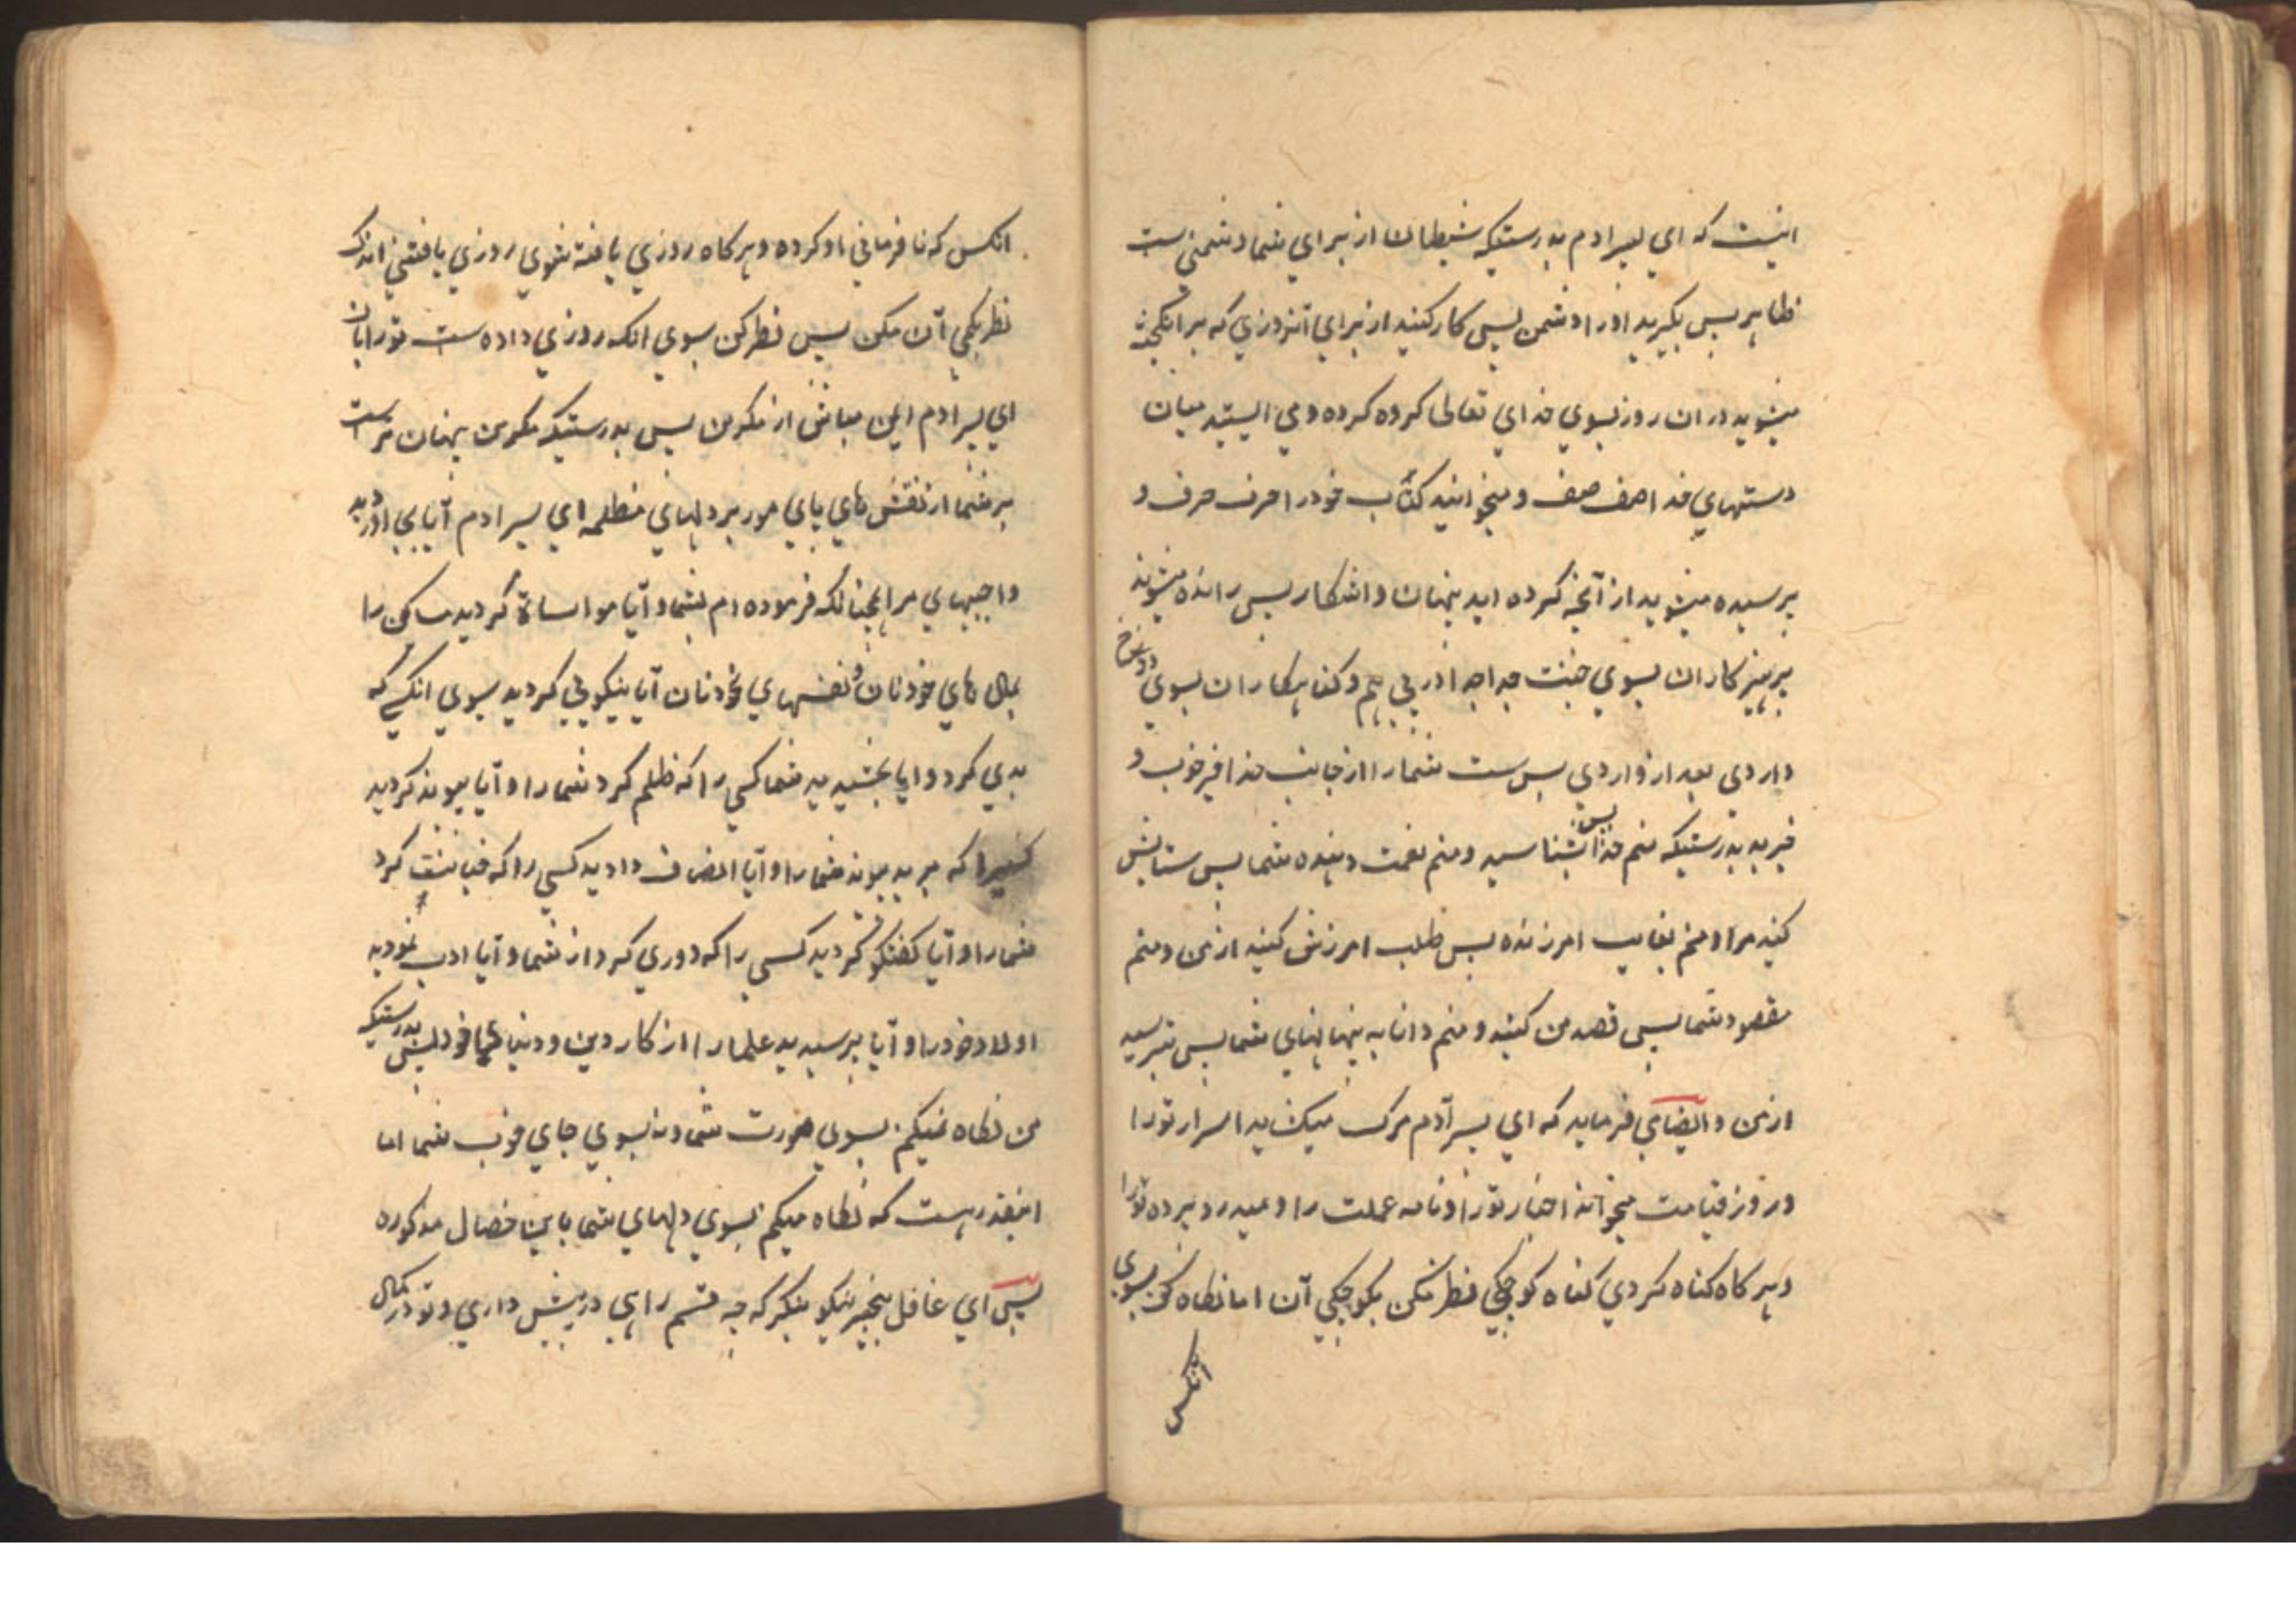 اینست که ای پسر ادم بدرستیکه شیطان از برای شما دشمنی ست
ظاهر پس بگیرید او را دشمن پس کار کنید از برای آنروزی که برانگیخته
میشوید در ان روز بسوی خدای تعالی کروه کروه و می ایستید میان
دستهای خدا صف صف و میخوانید کتاب خود را حرف حرف و
پرسیده میشوید از آنچه کرده اید پنهان و اشکار پس رانده میشوند
پرهیزکاران بسوی جنت جدا جدا در پی هم و کناهکاران بسوی دوزخ
واردی بعد از واردی بس ست شما را از جانب خدا خیر خوب و
خیر بد بدرستیکه منم خدا پس بشناسید و منم نعمت دهنده شما پس ستایش
کنید مرا و منم بغایت امرزنده پس طلب امرزش کنید از من و منم
مقصود شما پس قصد من کنید و منم دانا به پنهانهای شما پس بترسید
از من و ایضا می فرماید که ای پسر آدم مرک میکشاید اسرار تو را
و روز قیامت میخواند اخبار تو را و نامه عملت را و میدرد پرده تو را
و هر کاه کناه کردی کناه کوچکی نظر مکن بکوچکی آن اما نکاه کن بسوی
انکس
انکس که نافرمانی او کرده و هر کاه روزی یافته شوی روزی یافتنی اندک
نظر بکمی آن مکن پس نظر کن بسوی انکه روزی داده ست تو را بان
ای پسر ادم ایمن مباش از مکر من پس بدرستیکه مکر من پنهان تر است
بر شما از نقش های پای مور بر دلهای مظلمه ای پسر ادم آیا بجای اوردید
واجبهای مرا همچنانکه فرموده ام بشما و آیا مواساة کردید مساکین را
بمال های خودتان و نفسهای خودتان آیا نیکویی کردید بسوی انکسی که
بدی کرد و ایا بخشیدید شما کسی را که ظلم کرد شما را و آیا پیوند کردید
کسیرا که برید پیوند شما را و آیا انصاف دادید کسی را که خیانت کرد
شما را و آیا کفتکو کردید کسی را که دوری کرد از شما و آیا ادب نمودید
اولاد خود را و آیا پرسیدید علما را از کار دین و دنیا خود پس بدرستیکه
من نکاه نمیکنم بسوی صورت شما و نه بسوی جای خوب شما اما
اینقدر هست که نکاه میکنم بسوی دلهای شما باین خصال مذکوره
پس ای غافل بیخبر نیکو بنکر که چه قسم راهی در پیش داری و تو در کمال